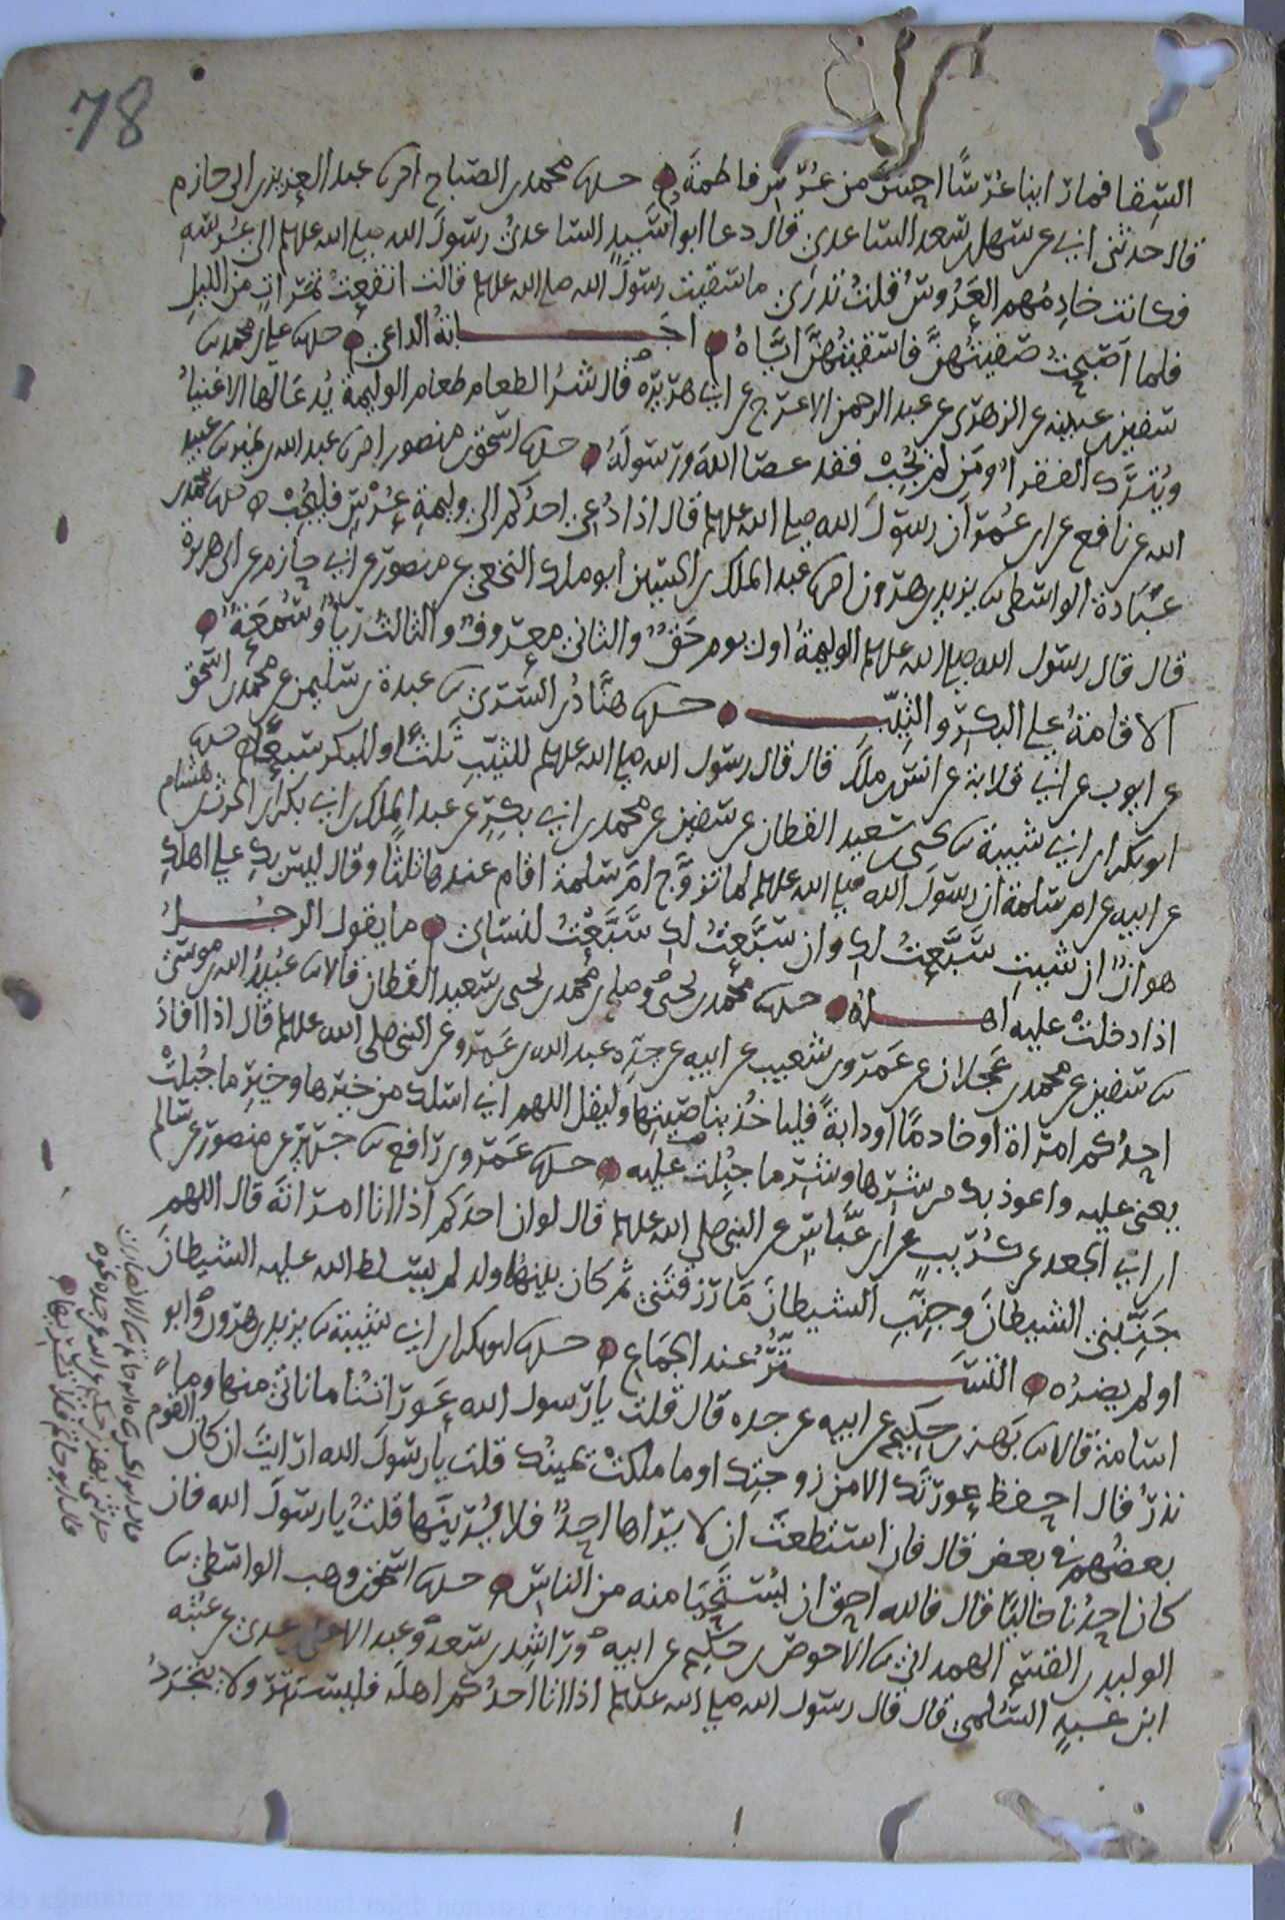 78
السقا فما راينا عرسًا احسنَ من عُرس فاطمةَ حدثنا محمد بن الصباح اخبرنا عبد العزيز بن ابي حازم
قال حدثني ابي عن سهل بن سعد الساعدي قال دعا ابو اسَيدٍ الساعديُ رسولَ الله صلى الله عليه وسلم الى عُرسه
فكانت خادِمُهم العَرُوسُ قلتُ تدرين ما سقيت رسولَ الله صلى الله عليه وسلم قالت انقعتُ تمراتٍ من الليلِ
فلما اصبحتُ صفيتُهنَّ فاسقيتُهنَّ ايَّاهُ اجابة الداعي حدثنا علي بن محمد ثنا
سفين بن عيينه عن الزهري عن عبد الرحمن الاعرج عن ابي هريره قال شرُ الطعام طعام الوليمة يُدعَا لها الاغنياُ
ويُترَك الفقراُ ومَن لم يُجِبْ فقد عصا اللهَ ورسولَهُ حدثنا اسحق بن منصور اخبرنا عبد الله بن نمير ثنا عبيد
الله عن نافع عن ابن عُمرَ ان رسولَ الله صلى الله عليه وسلم قال اذا دُعي احدُكم الى وليمةِ عُرْسٍ فليُجِبْ حدثنا محمد بن
عُبَادة الواسطي ثنا يزيد بن هرون اخبرنا عبد الملك بن الحسين ابو ملك النخعي عن منصور عن ابي حازم عن ابي هريرة
قال قال رسول الله صلى الله عليه وسلم الوليمةُ اول يوم حَقٌ والثاني معروفٌ والثالث رياٌ وسُمعَةٌ
الاقامةُ على البكرِ والثيِّبِ حدثنا هنَّادُ بن السري ثنا عبدة بن سليمن عن محمد بن اسحق
عن ايوب عن ابي قلابة عن انس بن ملك قال قال رسول الله صلى الله عليه وسلم للثيّبِ ثلثًا وللبكر سبعًا حدثنا
ابو بكر بن ابي شيبة ثنا يحيى بن سعيد القطان عن سفين عن محمد بن ابي بكرٍ عن عبد الملك بن ابي بكر بن الحرث بن هشام
عن ابيه عن ام سلمة ان رسولَ الله صلى الله عليه وسلم لما تزوَّج امَّ سلمة اقام عندها ثلثًا وقال ليس بكِ على اهلكِ
هوانٌ ان شيتِ سَبَّعتُ لكِ وان سَبَّعتُ لكِ سَبَّعْتُ لنسائي ما يقول الرجلُ
اذا دخلتْ عليه اهلُهُ حدثنا محمد بن يحيى وصالح بن محمد بن يحيى بن سعيد القطان قالا ثنا عبيدُ الله بن موسى
ثنا سفين عن محمد بن عجلان عن عَمرو بن شعيب عن ابيه عن جدِّه عبد الله بن عَمرو عن النبي صلى الله عليه وسلم قال اذا افادَ
احدُكم امراةً او خادمًا او دابةً فلياخُذ بناصيتِها وليقل اللهم اني اسلك من خيرها وخيرِ ما جُبلتْ
يعني عليه واعوذ بك من شرها وشر ما جُبِلت عليه حدثنا عَمرو بن رافع ثنا جرير عن منصور عن سالم
ابن ابي الجعد عن كُرَيبٍ عن ابن عبَّاسٍ عن النبي صلى الله عليه وسلم قال لو ان احدَكم اذا اتا امراتَهُ قال اللهم
جَنِّبني الشيطانَ وجنِّبِ الشيطانَ ما رزقتَني ثم كان بينهُما ولد لم يُسلط الله عليه الشيطانَ
او لم يضرُه التستُّر عند الجماع حدثنا ابو بكر بن ابي شيبة ثنا يزيد بن هرون وابو
اسامة قالا ثنا بَهز بن حكيم عن ابيه عن جده قال قلت يا رسول الله عَوراتُنا ما ناتي منها وما
نذرُ قال احفظ عورتَك الا من زوجتِك او ما ملكتْ يمينُك قلت يا رسولَ الله ارايتَ ان كان القوم
بعضُهم في بعض قال فان استطعتَ ان لا يراها احدٌ فلا يُرَيَنَّها قلتُ يا رسولَ الله فان
كان احدُنا خاليًا قال فالله احق ان يُستحيا منه من الناسِ حدثنا اسحق بن وهب الواسطي ثنا
الوليد بن القسم الهمداني ثنا الاحوص بن حكيم عن ابيه وراشد بن سعد وعبد الاعلى بن عدي عن عتبه
ابن عبدٍ السُلَمي قال قال رسول الله صلى الله عليه وسلم اذا اتا احدُكم اهلَه فليستتر ولا يتجرَدُ
قال ابو الحسن ثنا ابو حاتم ثنا الانصاري
حدثني بهز بن حكيم عن ابيه عن جده نحوه
قال ابو حاتم